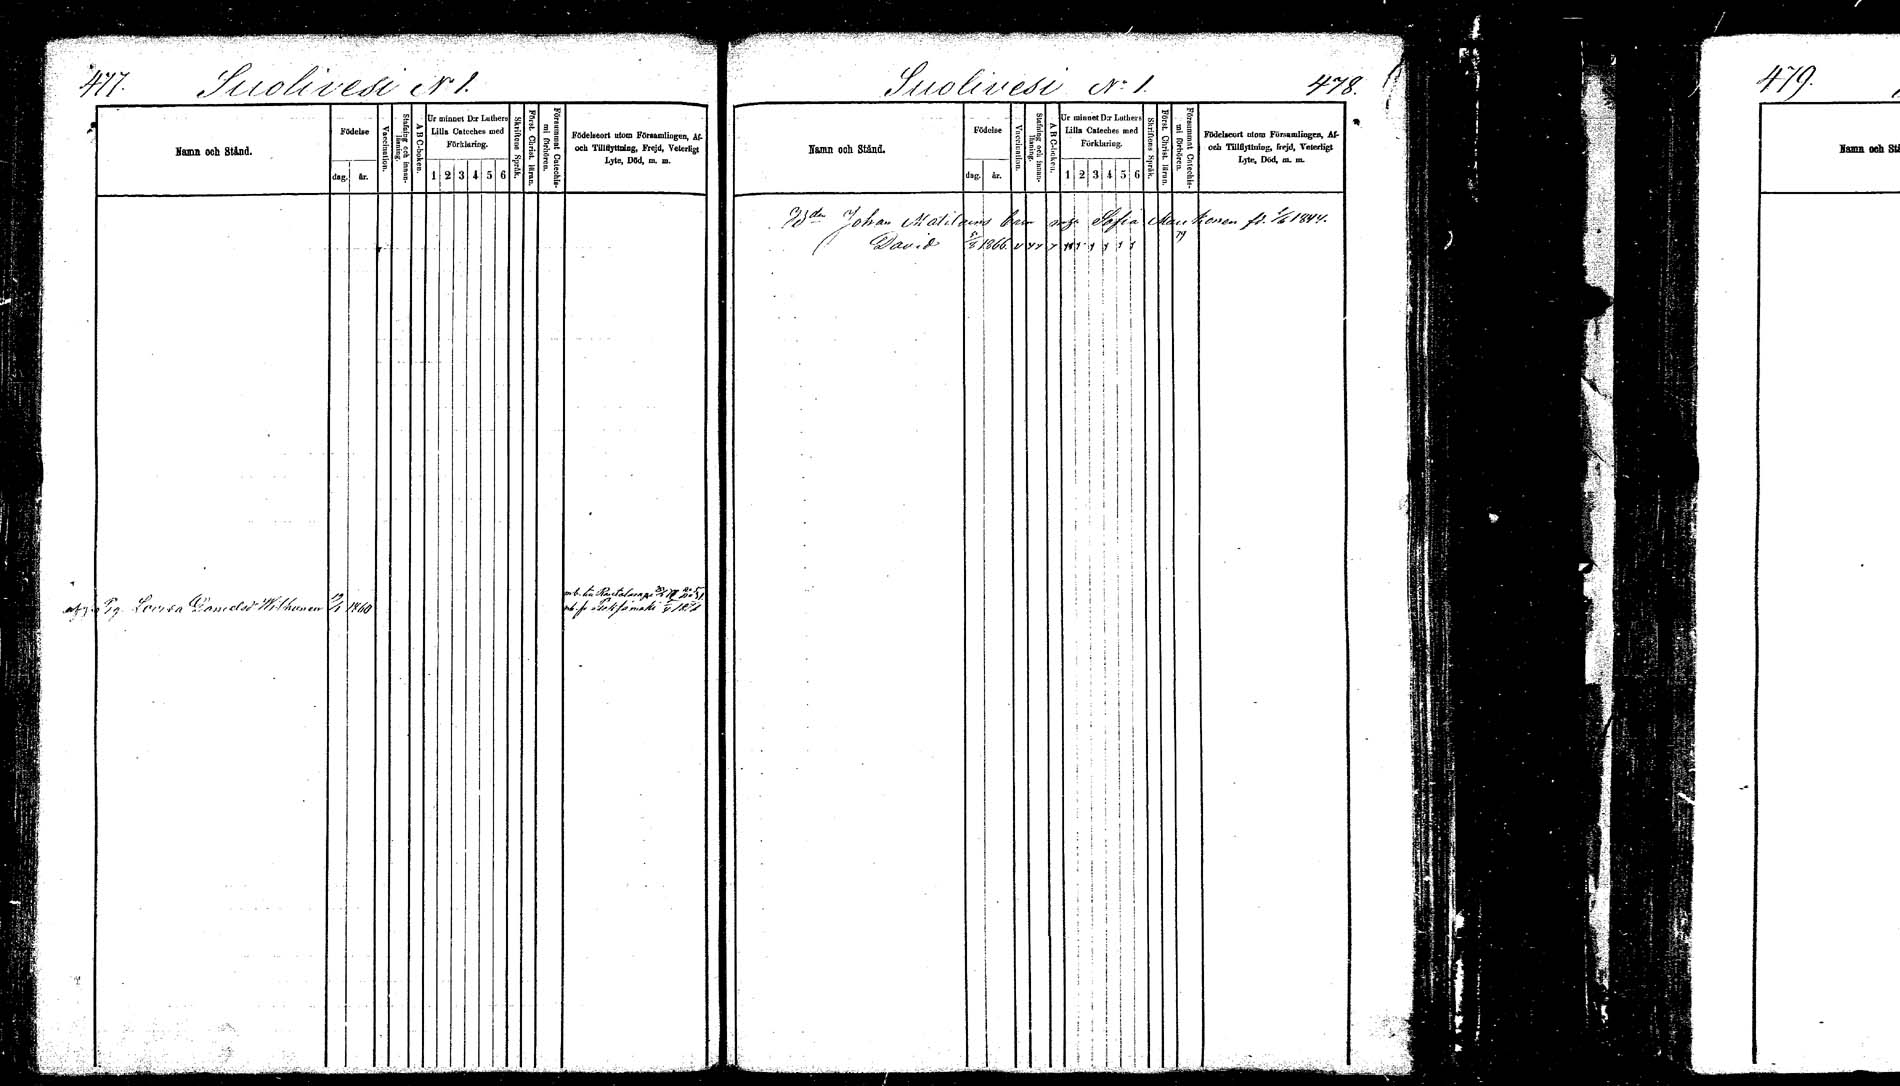 477. Suolivesi N:o 1.
Namn och Stånd.
Födelse
dag. år.
Vaccination.
Stafning och innan-läsning.
A B C-boken.
Ur minnet D:r Luthers
Lilla Cateches med
Förklaring.
1 2 3 4 5 6
Skriftens Språk.
Först. Christ. läran.
Försummat Catechis-mi förhören.
Födelseort utom Församlingen, Af-
och Tillflyttning, Frejd, Veterligt
Lyte, Död, m. m.
Pig. Lovisa Danielsd Wilhunen 1860
Suolivesi N:o 1. 478.
Namn och Stånd.
Födelse
dag. år.
Vaccination.
Stafning och innan-läsning.
A B C-boken.
Ur minnet D:r Luthers
Lilla Cateches med
Förklaring.
1 2 3 4 5 6
Skriftens Språk.
Först. Christ. läran.
Försummat Catechis-mi förhören.
Födelseort utom Församlingen, Af-
och Tillflyttning, frejd, Veterligt
Lyte, Död, m. m.
Johan Matilains barn Sofia fd. 1844.
David 1866
479.
Namn och Stå